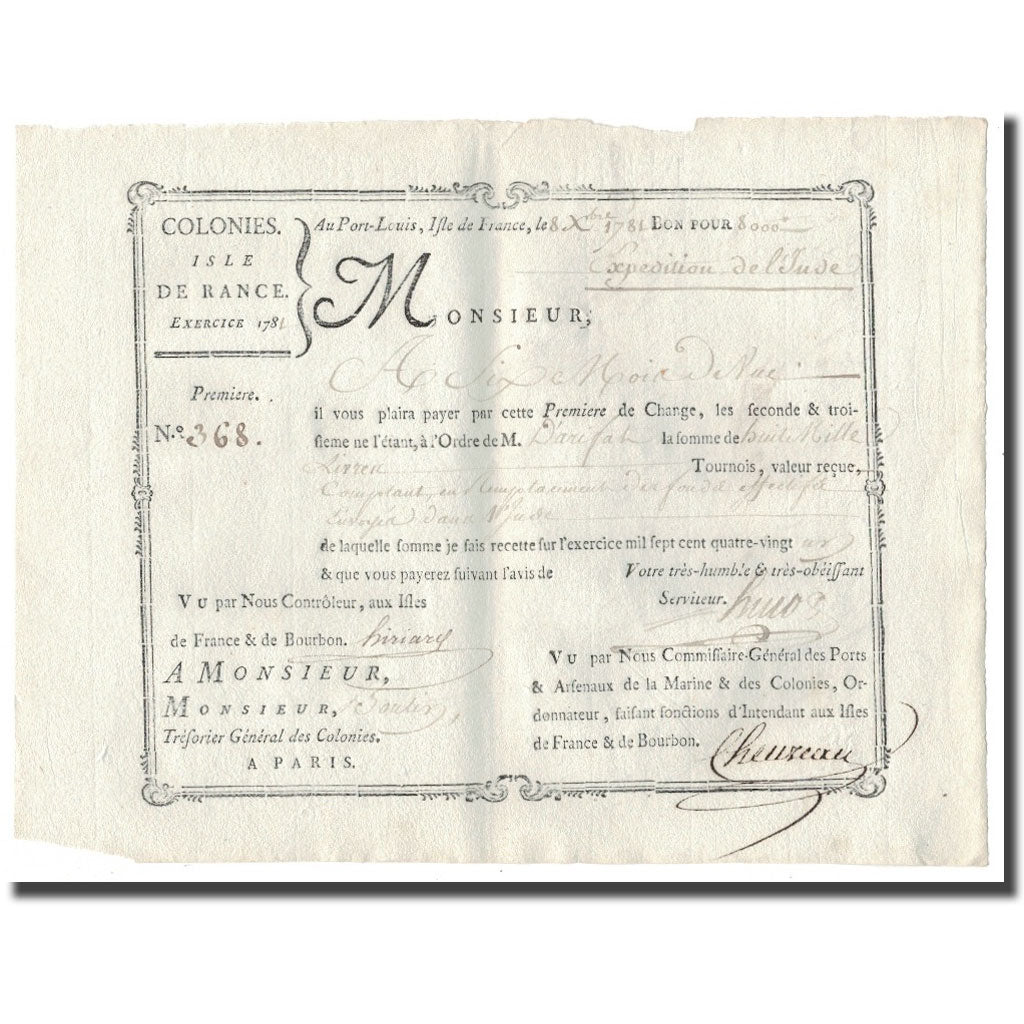 COLONIES.
ISLE
DE RANCE.
EXERCICE 1781
Au Port-Louis, Isle de France, le 8 Xbre 1781 BON POUR 8000#
Expedition de l'Inde
MONSIEUR,
A Six Mois de Vue
Premiere.
N.º 368.
il vous plaira payer par cette Premiere de Change, les seconde & troi-
sieme ne l'étant, à l'Ordre de M. Darifat la somme de huit Mille
Livres Tournois, valeur reçue,
Comptant, en Remplacement des fonds effectifs
Envoyés dans l'Inde
de laquelle somme je fais recette sur l'exercice mil sept cent quatre-vingt un
& que vous payerez suivant l'avis de
Votre très-humble & très-obéissant
Serviteur.
VU par Nous Contrôleur, aux Isles
de France & de Bourbon. hiriart
A MONSIEUR,
MONSIEUR,
Trésorier Général des Colonies.
A PARIS.
VU par Nous Commissaire-Général des Ports
& Arsenaux de la Marine & des Colonies, Or-
donnateur, faisant fonctions d'Intendant aux Isles
de France & de Bourbon. Chevreau